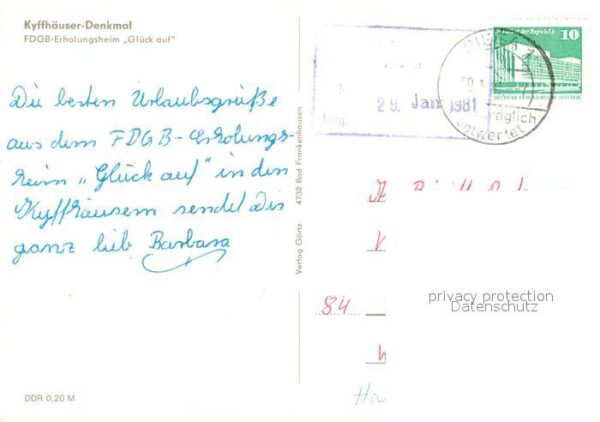 Kyffhäuser-Denkmal
FDGB-Erholungsheim „Glück auf"
Die besten Urlaubsgrüße
aus dem FDGB-Erholungs-
heim „Glück auf" in den
Kyffhäusern sendet Dir
ganz lieb Barbara
DDR 0,20 M
Verlag Görtz 4732 Bad Frankenhausen
der Republik
10
DEUTSCHE DEMOKRATISCHE REPUBLIK
29. Jan. 1981
entwertet
84
privacy protection
Datenschutz